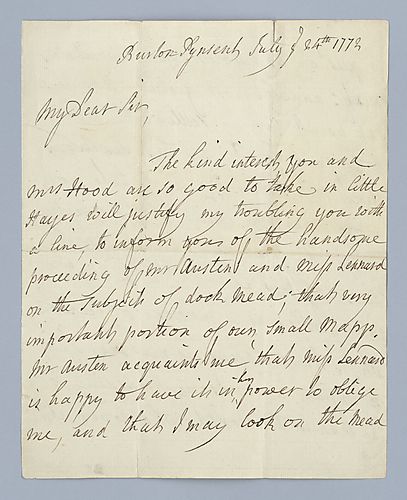 Burton-Pynsent July ye 24th 1772
My Dear Sir,
The kind interest you and
Mrs Hood are so good to take in little
Hayes will justify my troubling you with
a line, to inform you of the handsome
proceeding of Mr Austen and Miss Lennard
on the subject of dock Mead: that very
important portion of our small Mapp.
Mr Austen acquaints me that Miss Lennard
is happy to have it in her power to oblige
me, and that I may look on the Mead